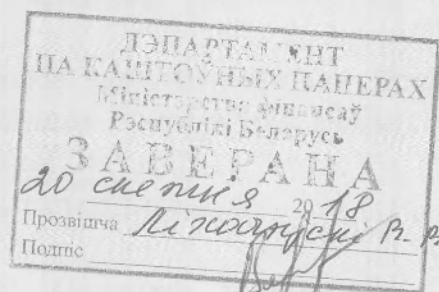 ДЭПАРТАМЕНТ
ПА КАШТОЎНЫХ ПАПЕРАХ
Міністэрства фінансаў
Рэспублікі Беларусь
ЗАВЕРАНА
20 снежня 2018
Прозвішча
Подпіс